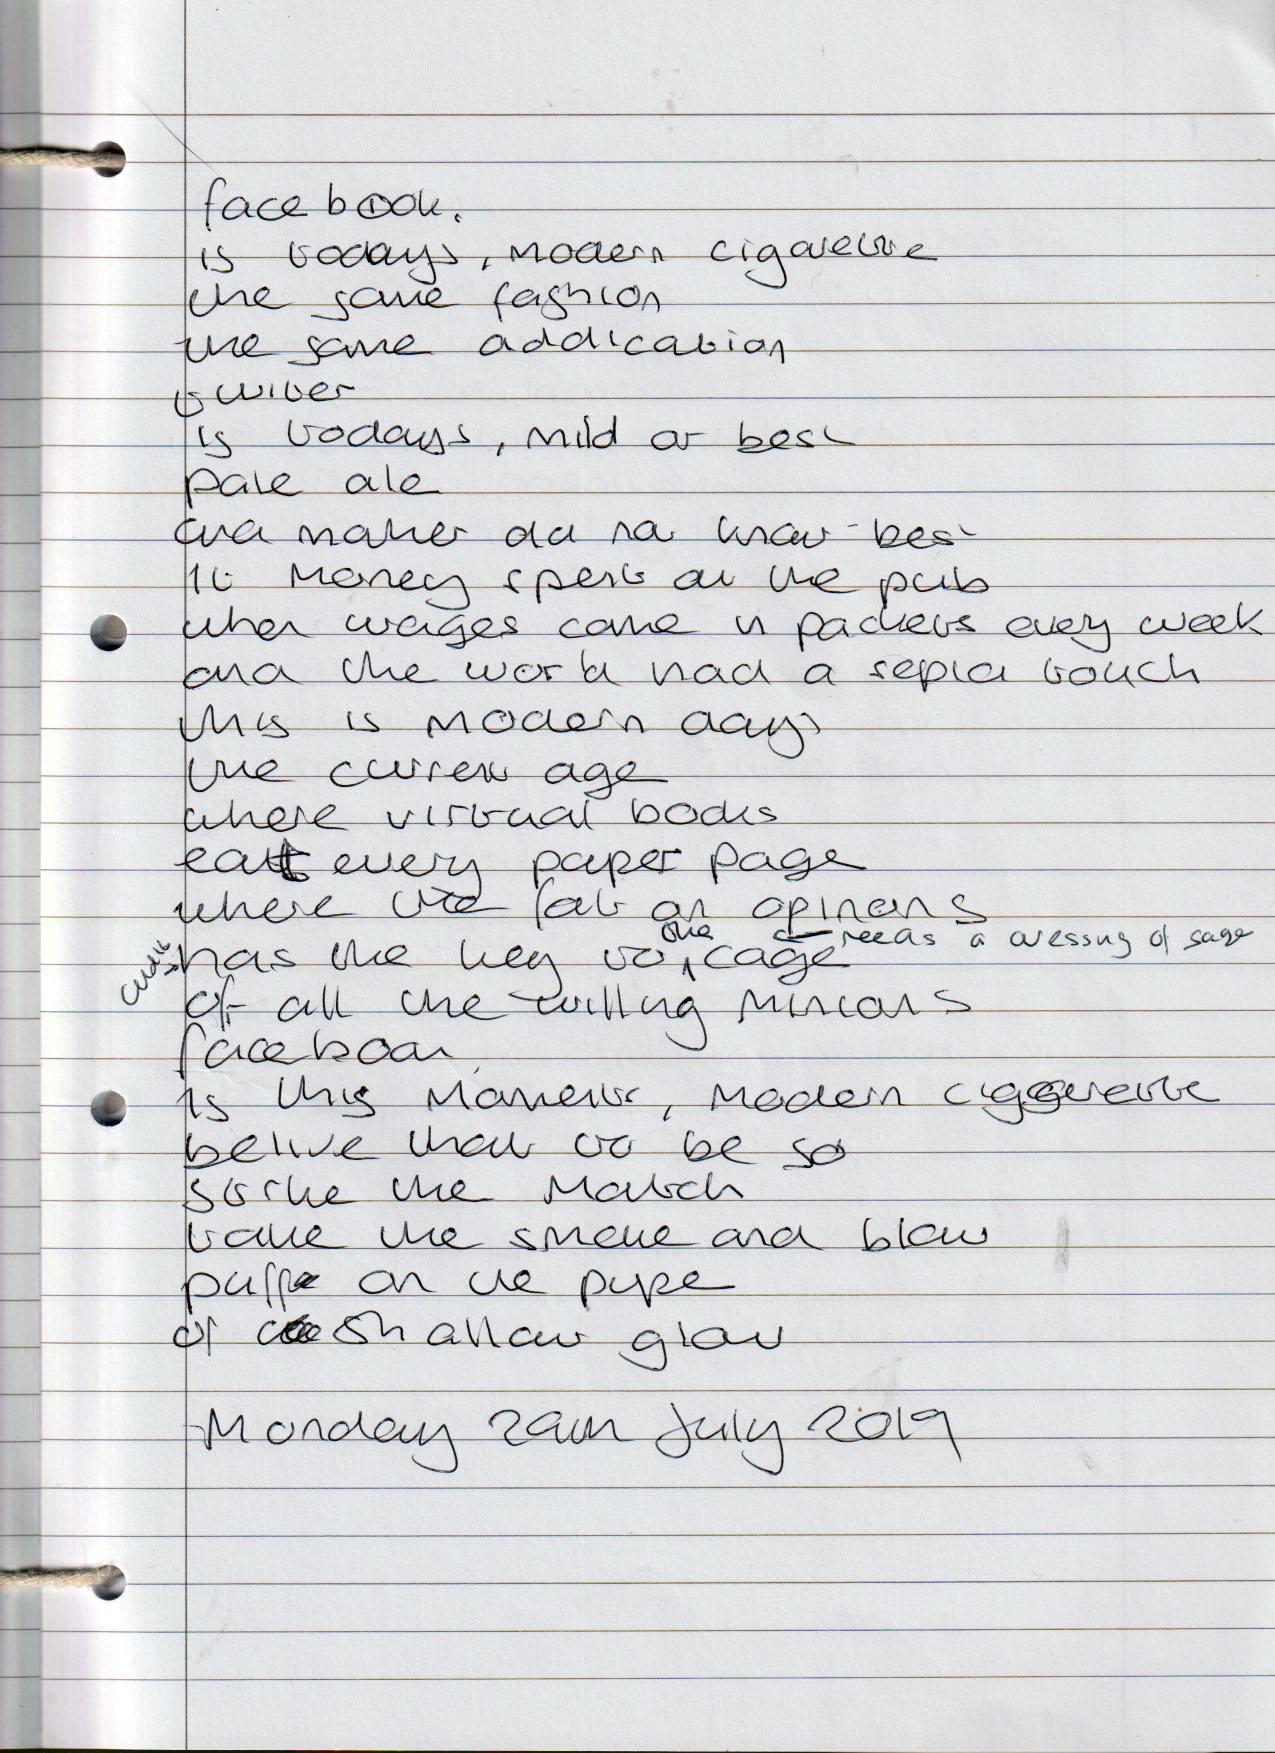 facebook.
is todays, modern cigarette
the same fashion
the same addication
twitter
is todays, mild or best
pale ale
and maker did not know best
it money spent at the pub
when wages came in packets every week
and the world had a sepia touch
this is modern days
the current age
where virtual books
eat every paper page
where the fat on opinons
needs a dressing of sage
and it has the key to the cage
of all the willing minions
facebook
is this moments, modern ciggerette
belive that to be so
strike the match
take the smoke and blow
puff on the pipe
of shallow glow
Monday 29th July 2019